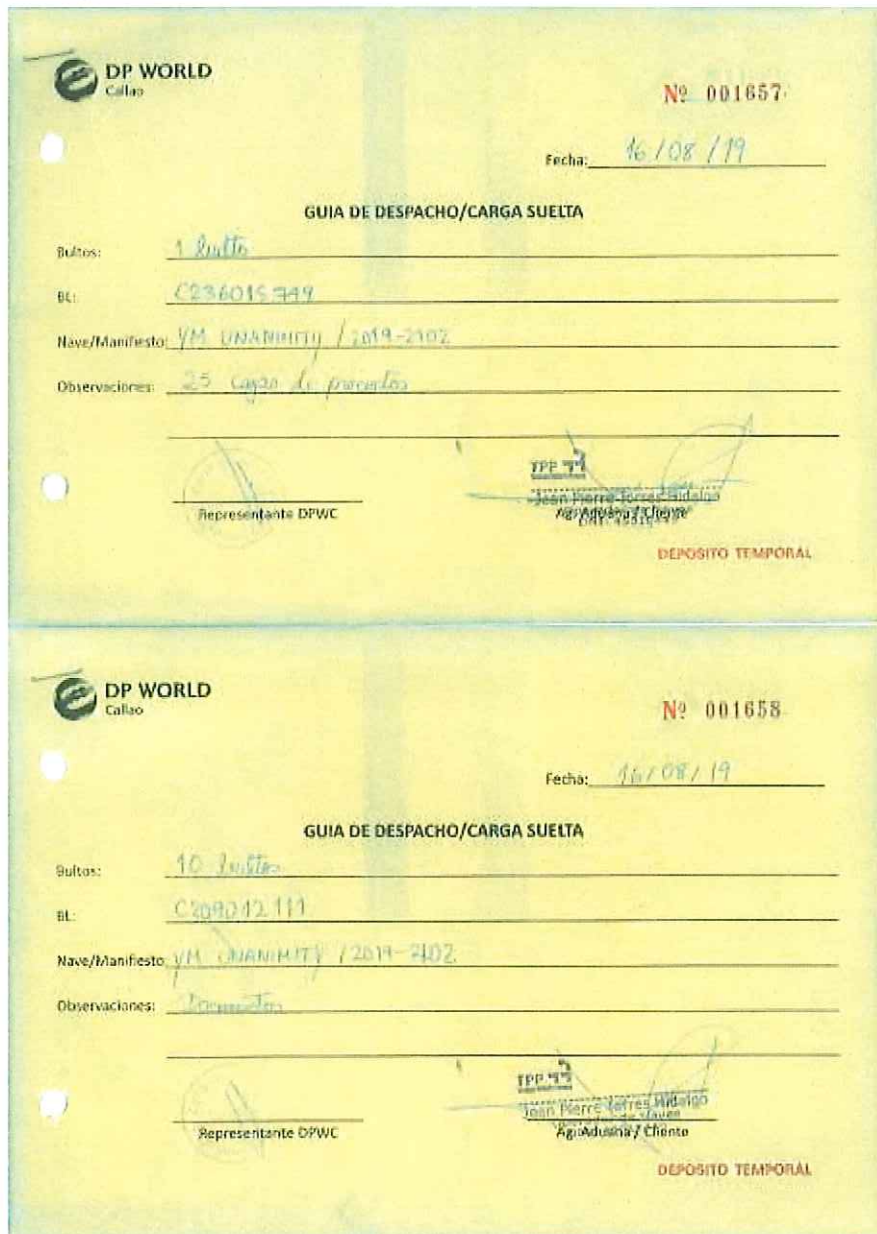 DP WORLD
Callao
Nº 001657
Fecha: 16/08/19
GUIA DE DESPACHO/CARGA SUELTA
Bultos: 1 bulto
BL: C236015749
Nave/Manifiesto: YM UNANIMITY / 2019-2102
Observaciones: 25 cajas de
TPP
Jean Pierre Torres Hidalgo
Representante DPWC
Ag. Aduana / Cliente
DEPOSITO TEMPORAL
DP WORLD
Callao
Nº 001658
Fecha: 16/08/19
GUIA DE DESPACHO/CARGA SUELTA
Bultos: 10 bultos
BL: C209012111
Nave/Manifiesto: YM UNANIMITY / 2019-2102
Observaciones:
TPP
Jean Pierre Torres Hidalgo
Representante DPWC
Ag. Aduana / Cliente
DEPOSITO TEMPORAL